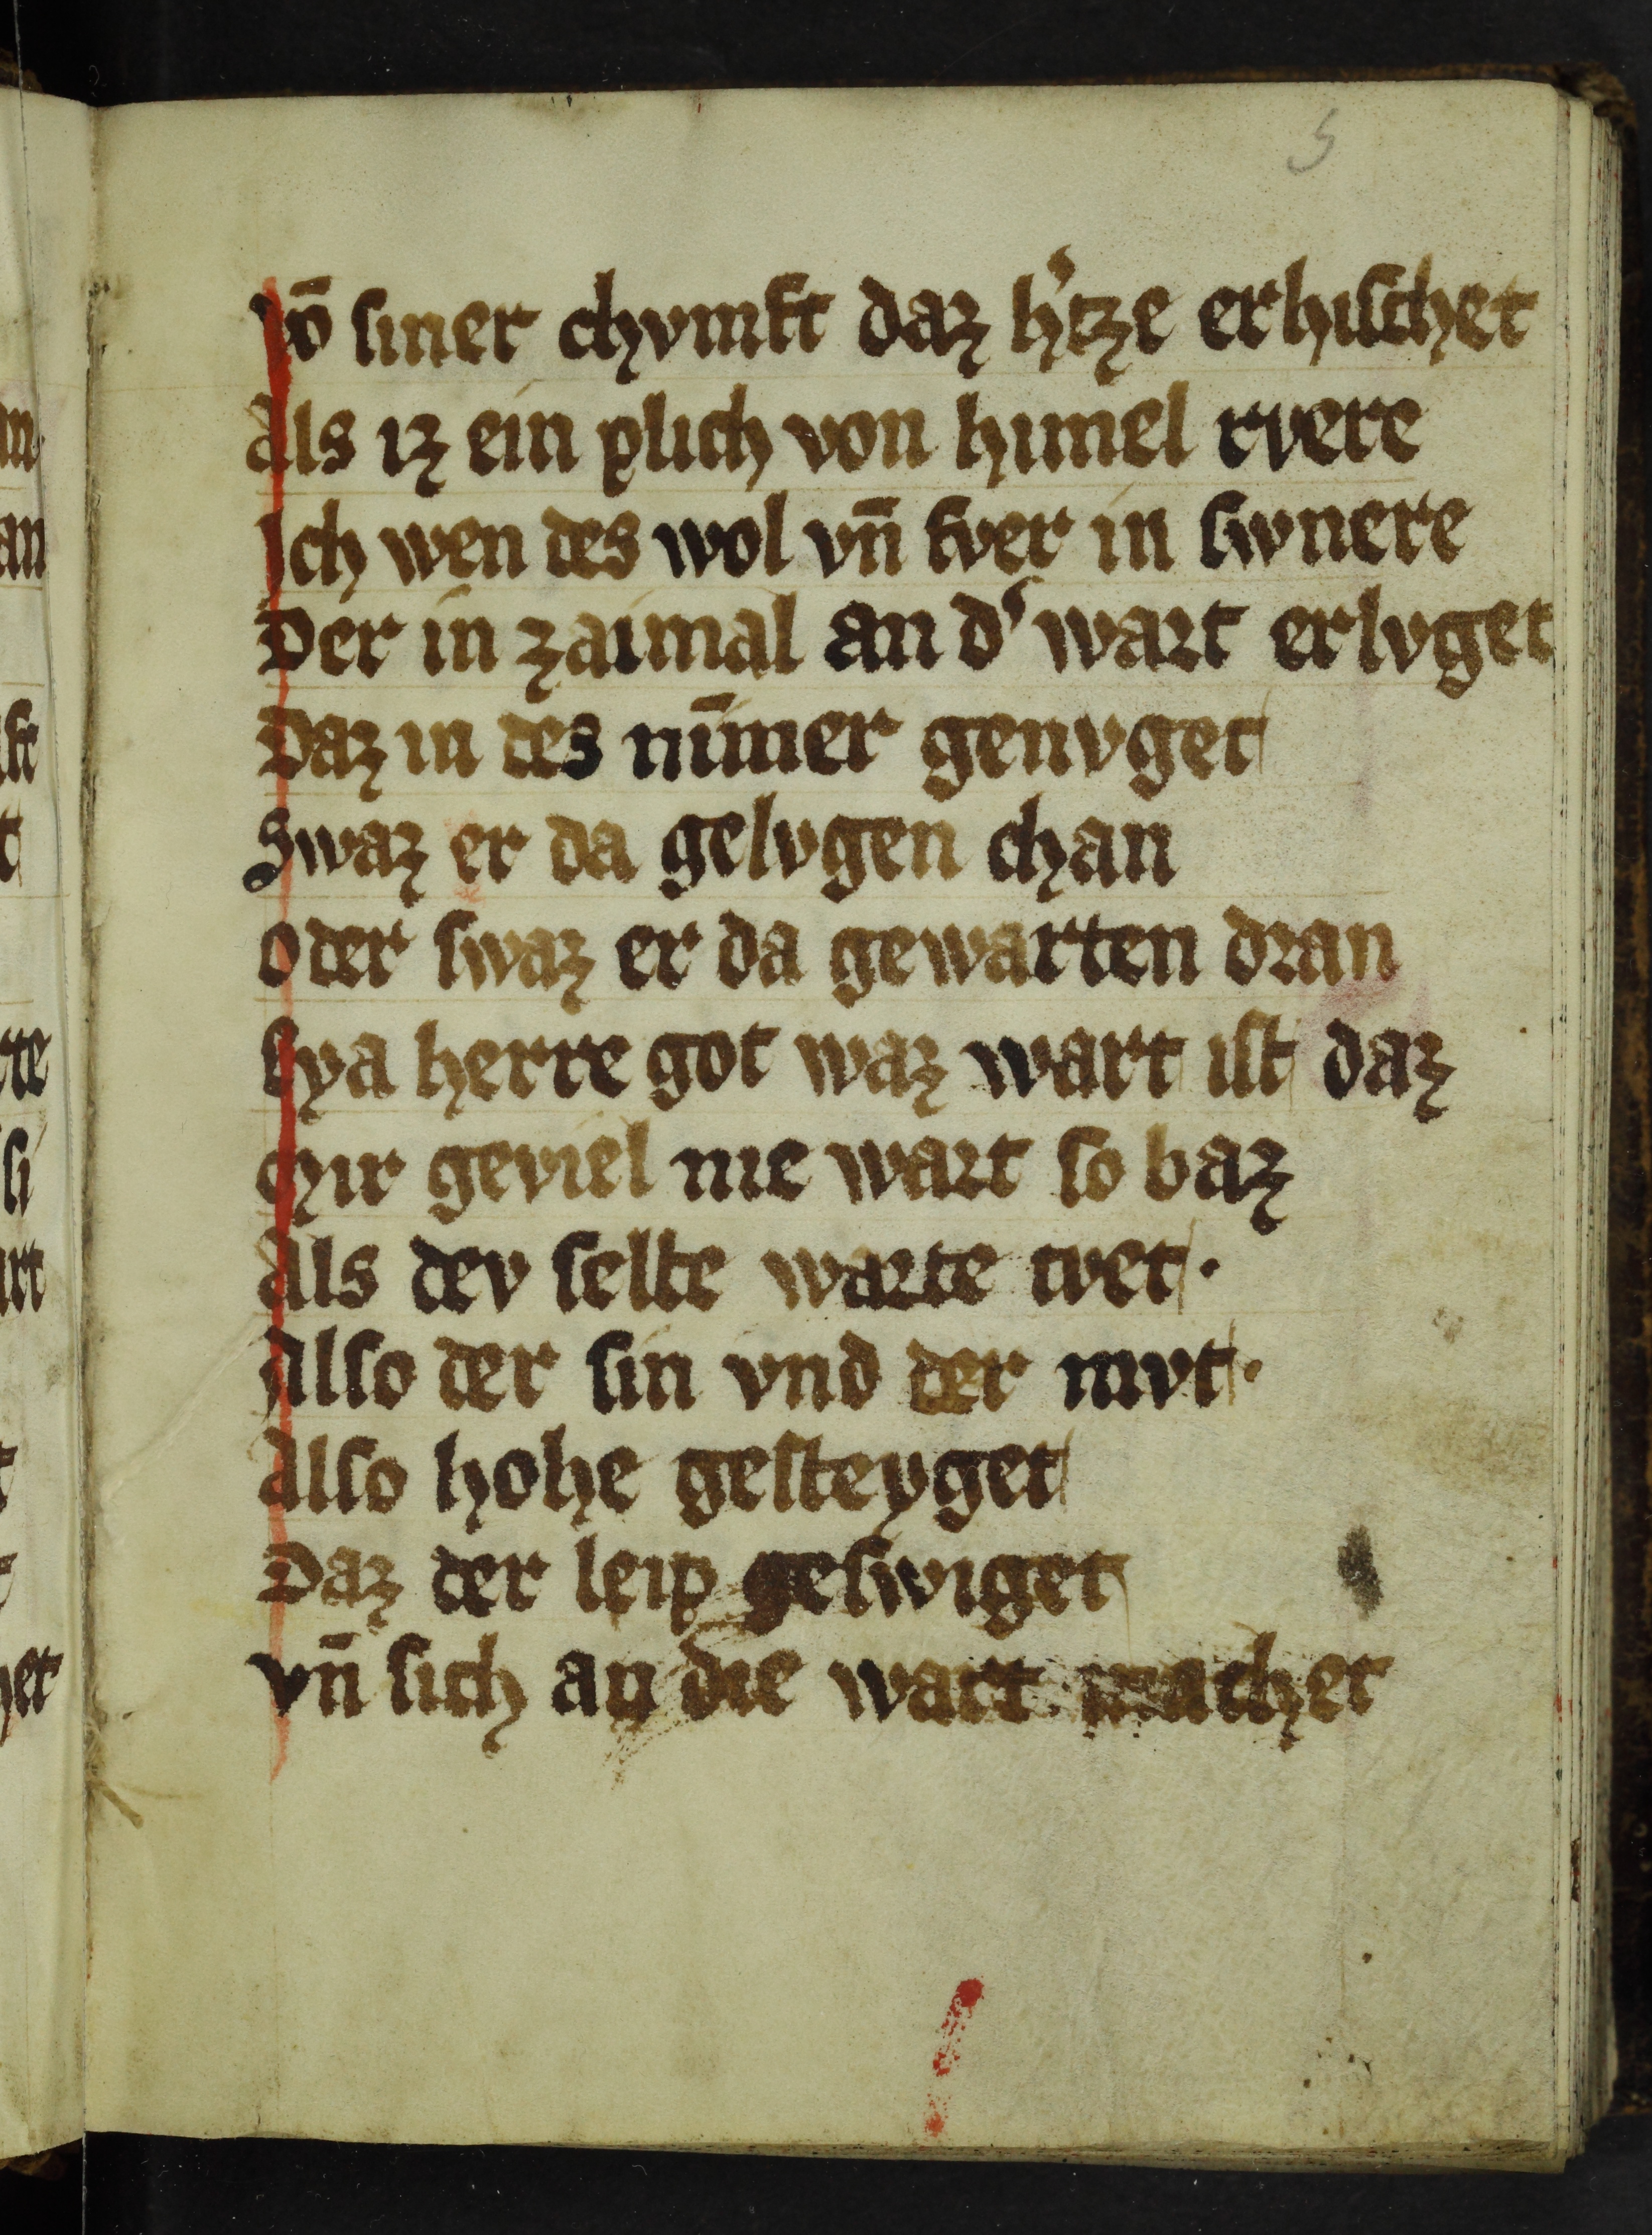 5
vō siner chvmft daz h'tze erhischet
Als iz ein plich von himel rvere
Ich wen des wol vn̄ fver in swnere
Der in zaimal an d' wart erlvget
Daz in des nīmer genvget
Swaz er da gelvgen chan
Oder swaz er da gewarten dran
Eya herre got waz wart ist daz
Mir geviel nie wart so baz
Als dev selbe warte tvet·
Also der sin vnd der mvt·
Also hohe gesteyget
Daz der leip geswiget
vn̄ sich an die wart machet